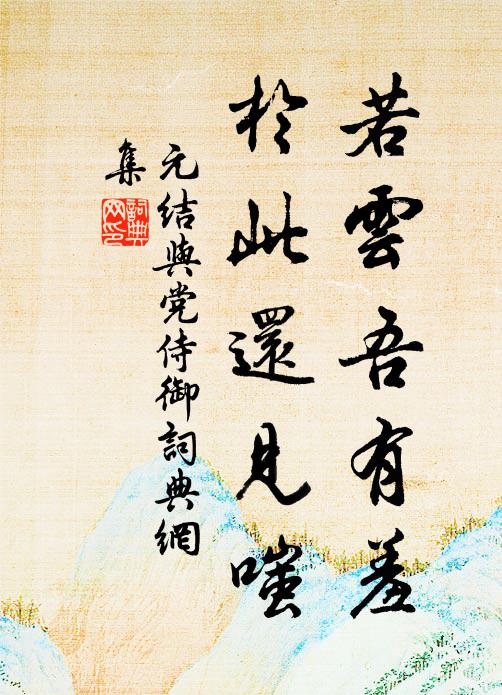 若雲吾有羞
於此還見嗤
元结與党侍御詞典網
集
詞典網印